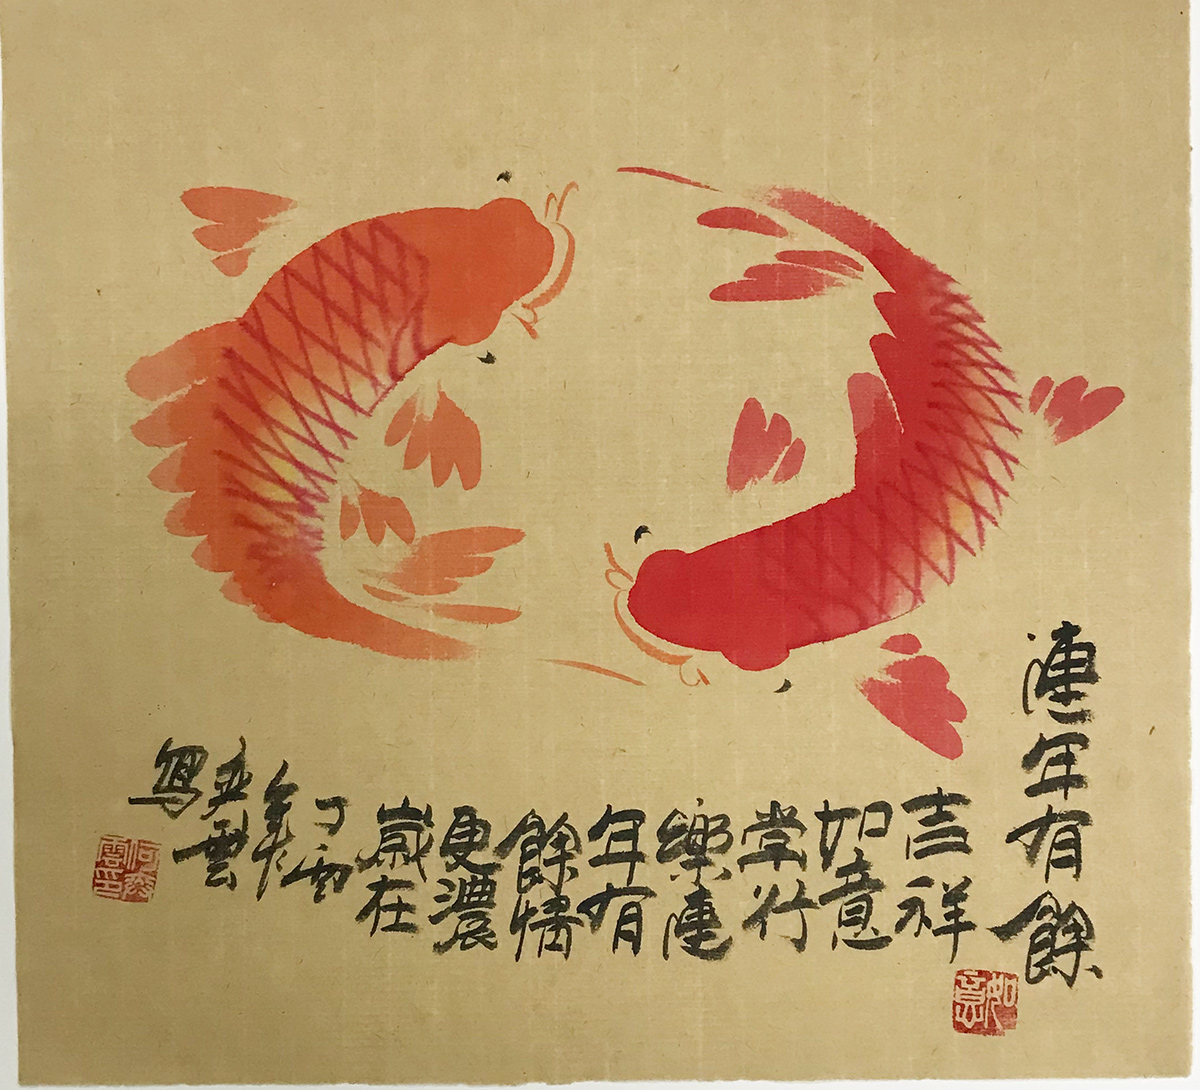 連年有餘
吉祥
如意
常行
樂連
年有
餘情
更濃
歲在
丁酉
年
雲
寫
如意